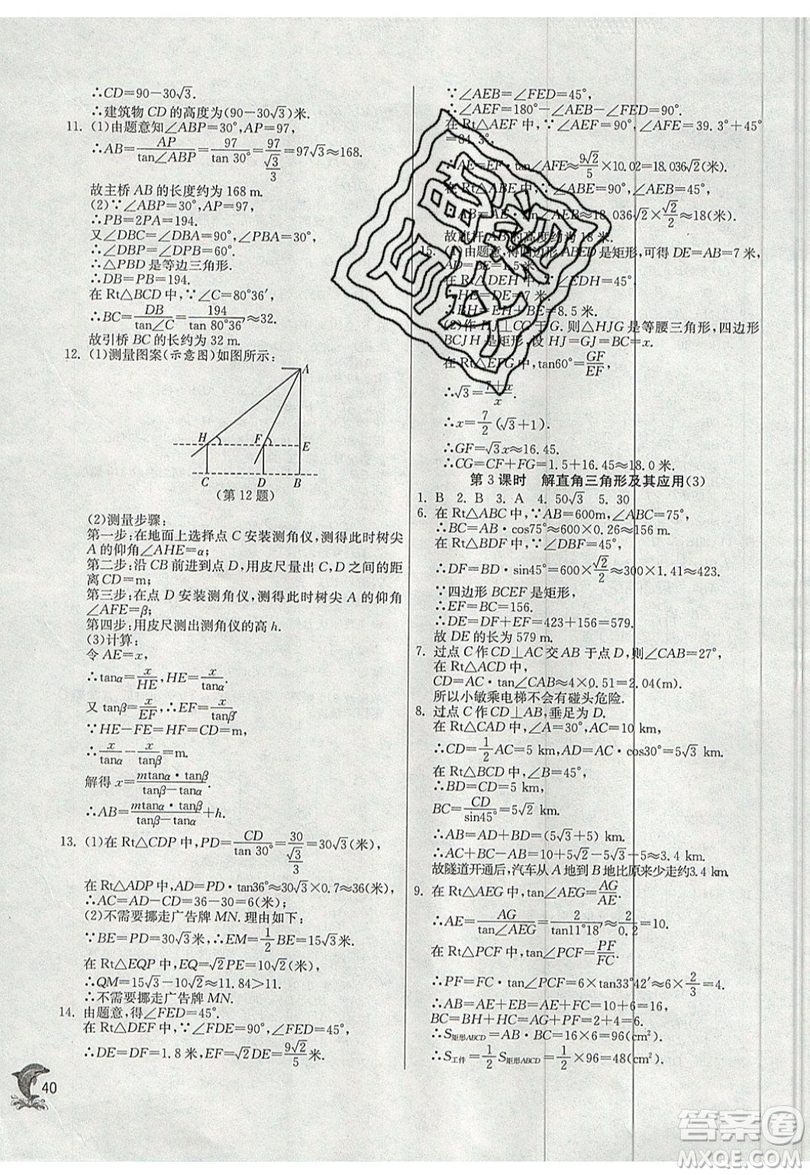 ∴CD=90-30√3.
∴建筑物 CD 的高度为(90-30√3)m.
11. (1)由题意知∠ABP=30°,AP=97,
∴AB=AP/tan∠ABP=97/tan 30°=97/(√3/3)=97√3≈168.
故主桥 AB 的长度约为 168 m.
(2)∵∠ABP=30°,AP=97,
∴PB=2PA=194.
又∠DBC=∠DBA=90°,∠PBA=30°,
∴∠DBP=∠DPB=60°.
∴△PBD 是等边三角形.
∴DB=PB=194.
在 Rt△BCD 中,∵∠C=80°36′,
∴BC=DB/tan C=194/tan 80°36′≈32.
故引桥 BC 的长度约为 32 m.
12. (1)测量图案(示意图)如图所示:
A
H F E
C D B
(第 12 题)
(2)测量步骤:
第一步:在地面上选择点 C 安装测角仪,测得此时树尖
A 的仰角∠AHE=α;
第二步:沿 CB 前进到点 D,用皮尺量出 C,D 之间的距
离 CD=m;
第三步:在点 D 安装测角仪,测得此时树尖 A 的仰角
∠AFE=β;
第四步:用皮尺测出测角仪的高 h.
(3)计算:
令 AE=x,
∴tanα=x/HE,HE=x/tanα.
又 tanβ=x/EF,∴EF=x/tanβ.
∵HE-FE=HF=CD=m,
∴x/tanα-x/tanβ=m.
解得 x=mtanα·tanβ/(tanβ-tanα).
∴AB=mtanα·tanβ/(tanβ-tanα)+h.
13. (1)在 Rt△CDP 中,PD=CD/tan 30°=30/(√3/3)=30√3(米),
在 Rt△ADP 中,AD=PD·tan36°≈30√3×0.7≈36(米).
∴AC=AD-CD=36-30=6(米).
(2)不需要挪走广告牌 MN. 理由如下:
∵BE=PD=30√3米,∴EM=1/2BE=15√3米.
在 Rt△EQP 中,EQ=√2PE=10√2(米),
∴QM=15√3-10√2≈11.84>11.
∴不需要挪走广告牌 MN.
14. 由题意,得∠FED=45°.
在 Rt△DEF 中,∵∠FDE=90°,∠FED=45°,
∴DE=DF=1.8 米,EF=√2DE=9√2/5(米).
40
∵∠AEB=∠FED=45°,
∴∠AEF=180°-∠AEB-∠FED=90°.
在 Rt△AEF 中,∵∠AEF=90°,∠AFE=39.3°+45°
=84.3°,
∴AE=EF·tan∠AFE≈9√2/5×10.02=18.036√2(米).
在 Rt△ABE 中,∵∠ABE=90°,∠AEB=45°,
∴AB=AE·sin∠AEB≈18.036√2×√2/2≈18(米).
故旗杆 AB 的高度约为 18 米.
15. (1)由题意,得四边形 ABED 是矩形,可得 DE=AB=7 米,
AD=BE=1.5 米.
在 Rt△DEH 中,∵∠EDH=45°,
∴HE=DE=7 米.
∴BH=HE+BE=8.5 米.
(2)作 HJ⊥CG 于 G. 则△HJG 是等腰三角形,四边形
BCJH 是矩形. 设 HJ=GJ=BC=x.
在 Rt△EFG 中,tan60°=GF/EF,
∴√3=(7+x)/x.
∴x=7/2(√3+1).
∴GF=√3x≈16.45.
∴CG=CF+FG=1.5+16.45≈18.0(米).
第 3 课时 解直角三角形及其应用(3)
1. B 2. B 3. A 4. 50√3 5. 30
6. 在 Rt△ABC 中,∵∠ABC=75°,
∴BC=AB·cos75°≈600×0.26≈156 m.
在 Rt△BDF 中,∵∠DBF=45°,
∴DF=BD·sin45°=600×√2/2≈423.
∵四边形 BCEF 是矩形,
∴EF=BC=156.
∴DE=DF+EF=423+156=579.
故 DE 的长为 579 m.
7. 过点 C 作 CD⊥AC 交 AB 于点 D,则∠CAB=27°,
在 Rt△ACD 中,
CD=AC·tan∠CAB=4×0.51=2.04(m).
所以小敏乘电梯不会有碰头危险.
8. 过点 C 作 CD⊥AB,垂足为 D.
在 Rt△ACD 中,∠A=30°,AC=10 km,
∴CD=1/2AC=5 km,AD=AC·cos30°=5√3 km.
在 Rt△BCD 中,∠B=45°,
∴BD=CD=5 km,
BC=CD/sin45°=5√2 km.
∴AB=AD+BD=(5√3+5)km.
∴AC+BC-AB=10+5√2-5√3-5≈3.4.
故隧道开通后,汽车从 A 地到 B 地比原来少走约3.4 km.
9. 在 Rt△AEG 中,tan∠AEG=AG/AE,
∴AE=AG/tan∠AEG=2/tan11°18′≈2/0.2=10.
在 Rt△PCF 中,∵tan∠PCF=PF/FC,
∴PF=FC·tan∠PCF=6×tan33°42′≈6×2/3=4.
∴AB=AE+EB=AE+PF=10+6=16,
BC=BH+HC=AG+FC=2+4=6.
∴S矩形ABCD=AB·BC=16×6=96(cm²).
∴S工件=1/2S矩形ABCD=1/2×96=48(cm²).
答案圈
MXQE.COM